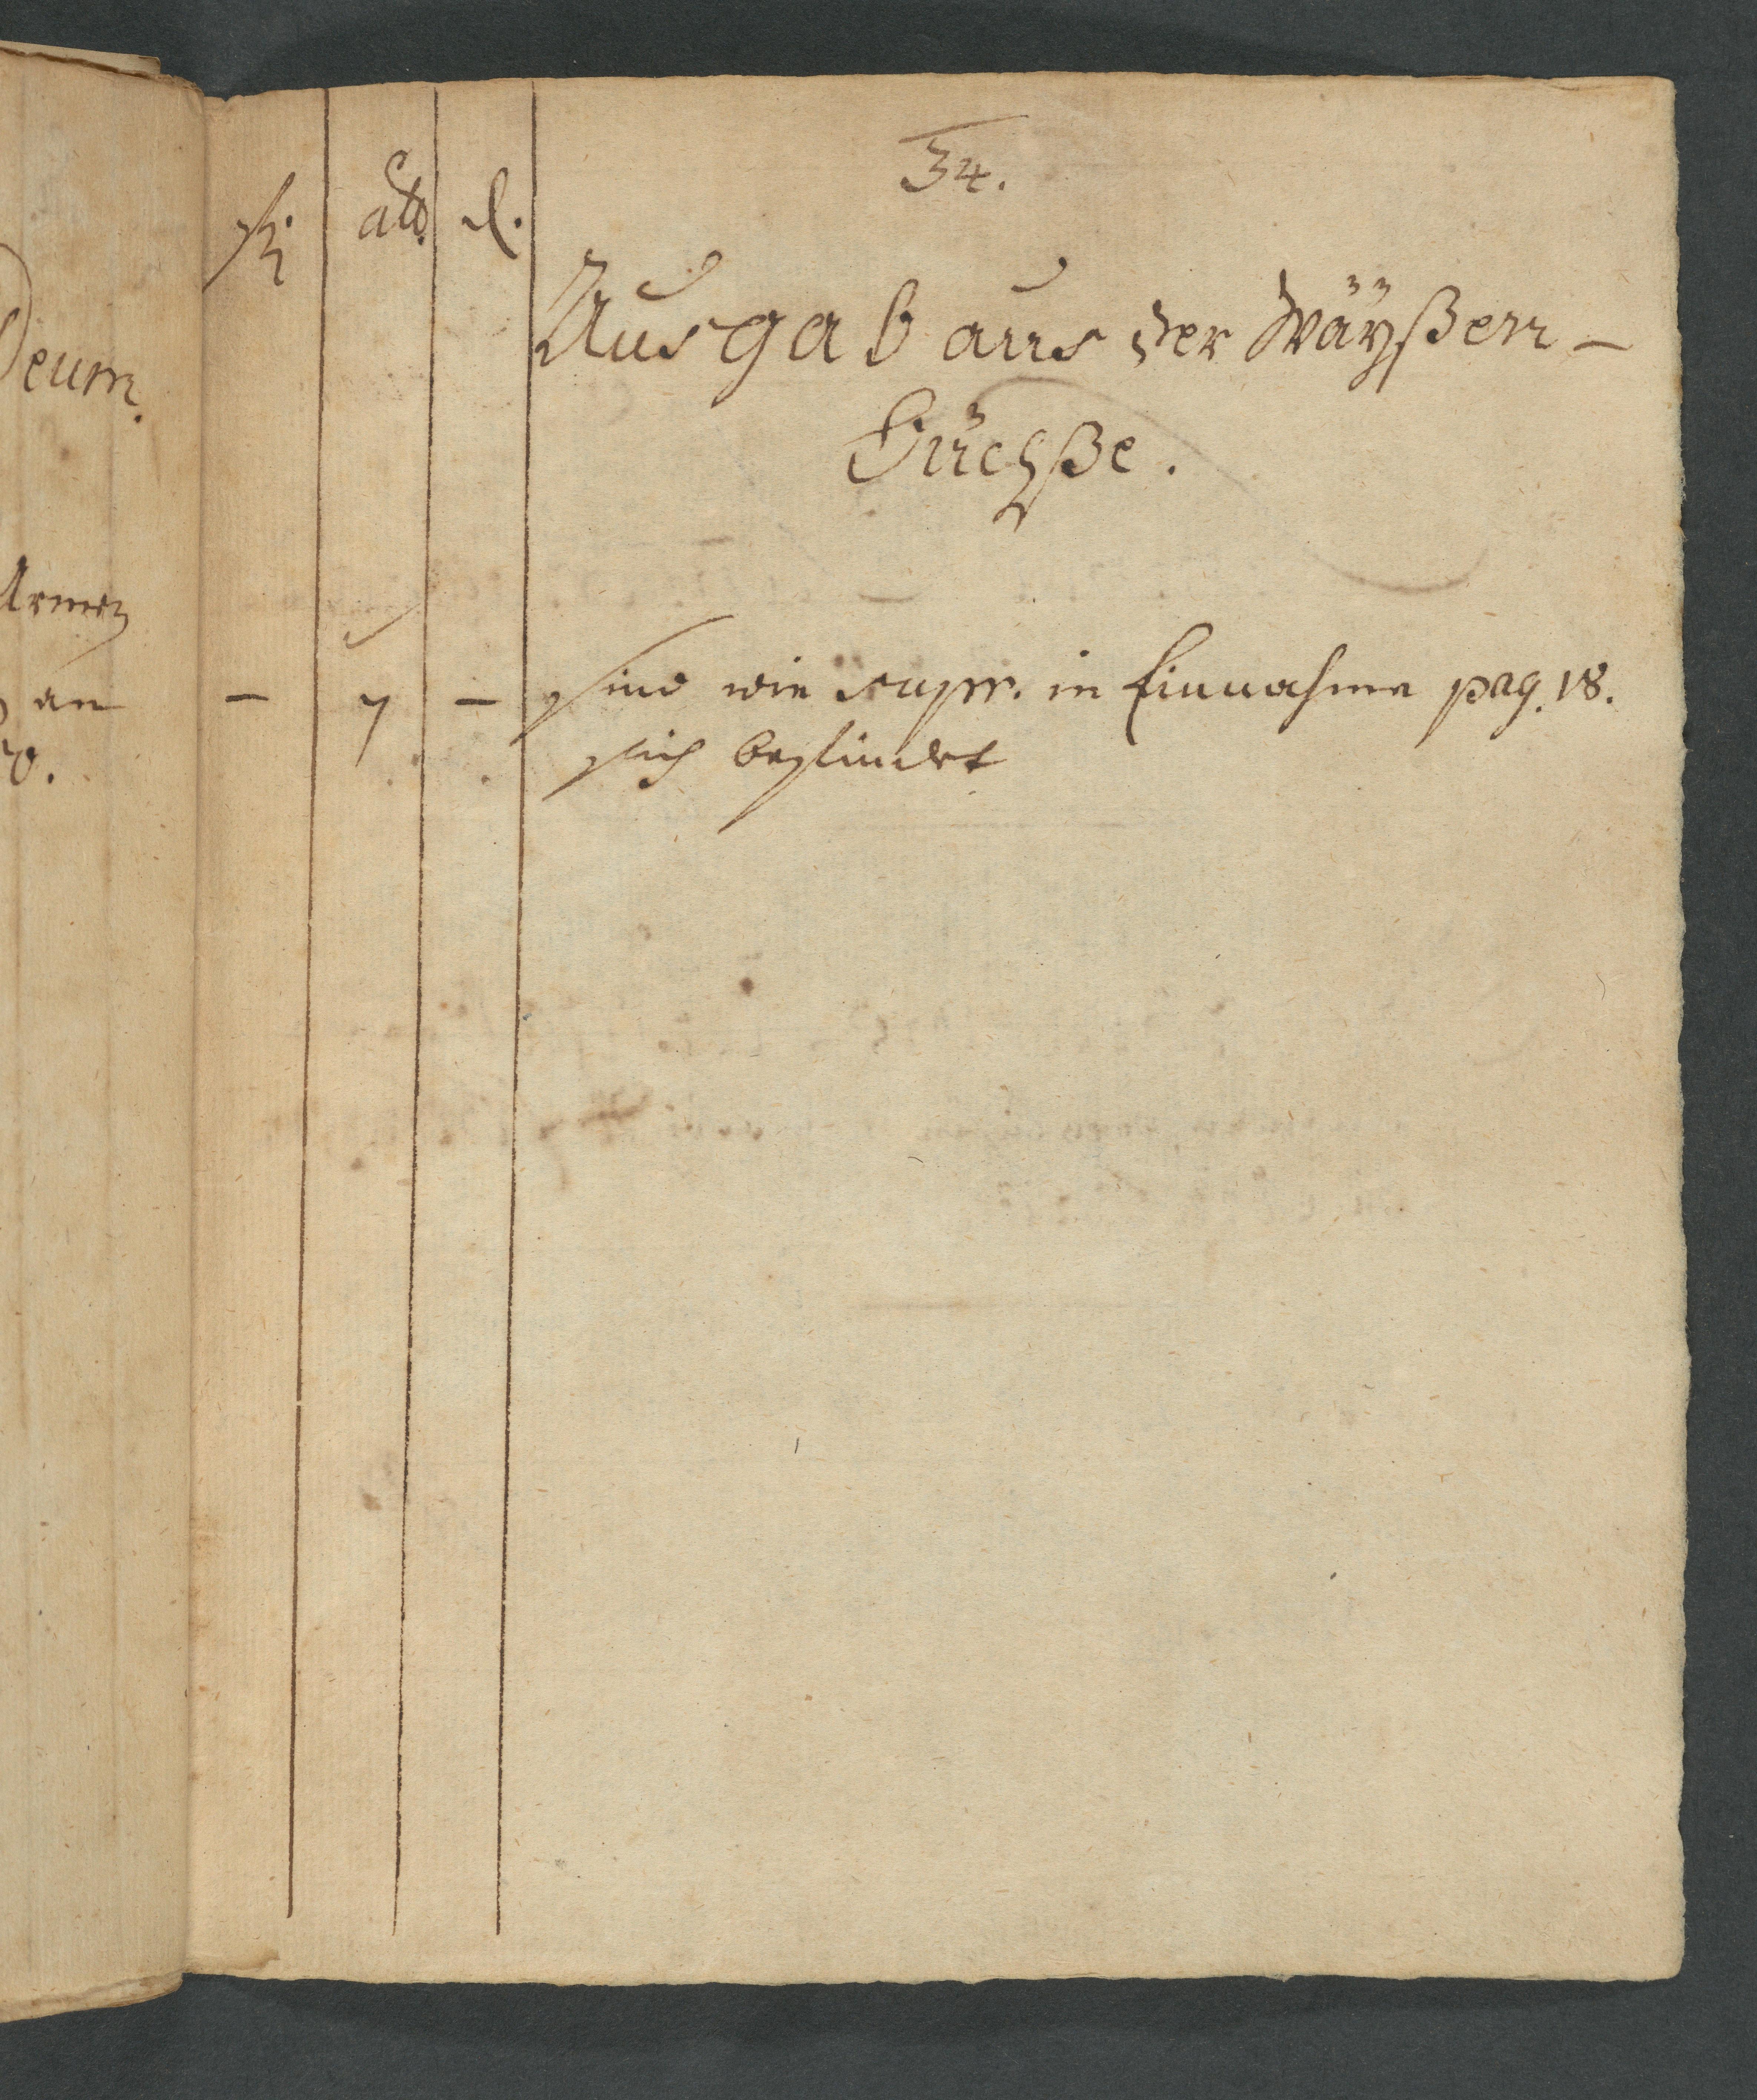 34.
fl. alb. d.
Ausgab aus der Wäÿßen-
Büchße.
- 7 - sind wie supr. in Einnahme pag. 18.
sich befindet
Deum.
Armen
an